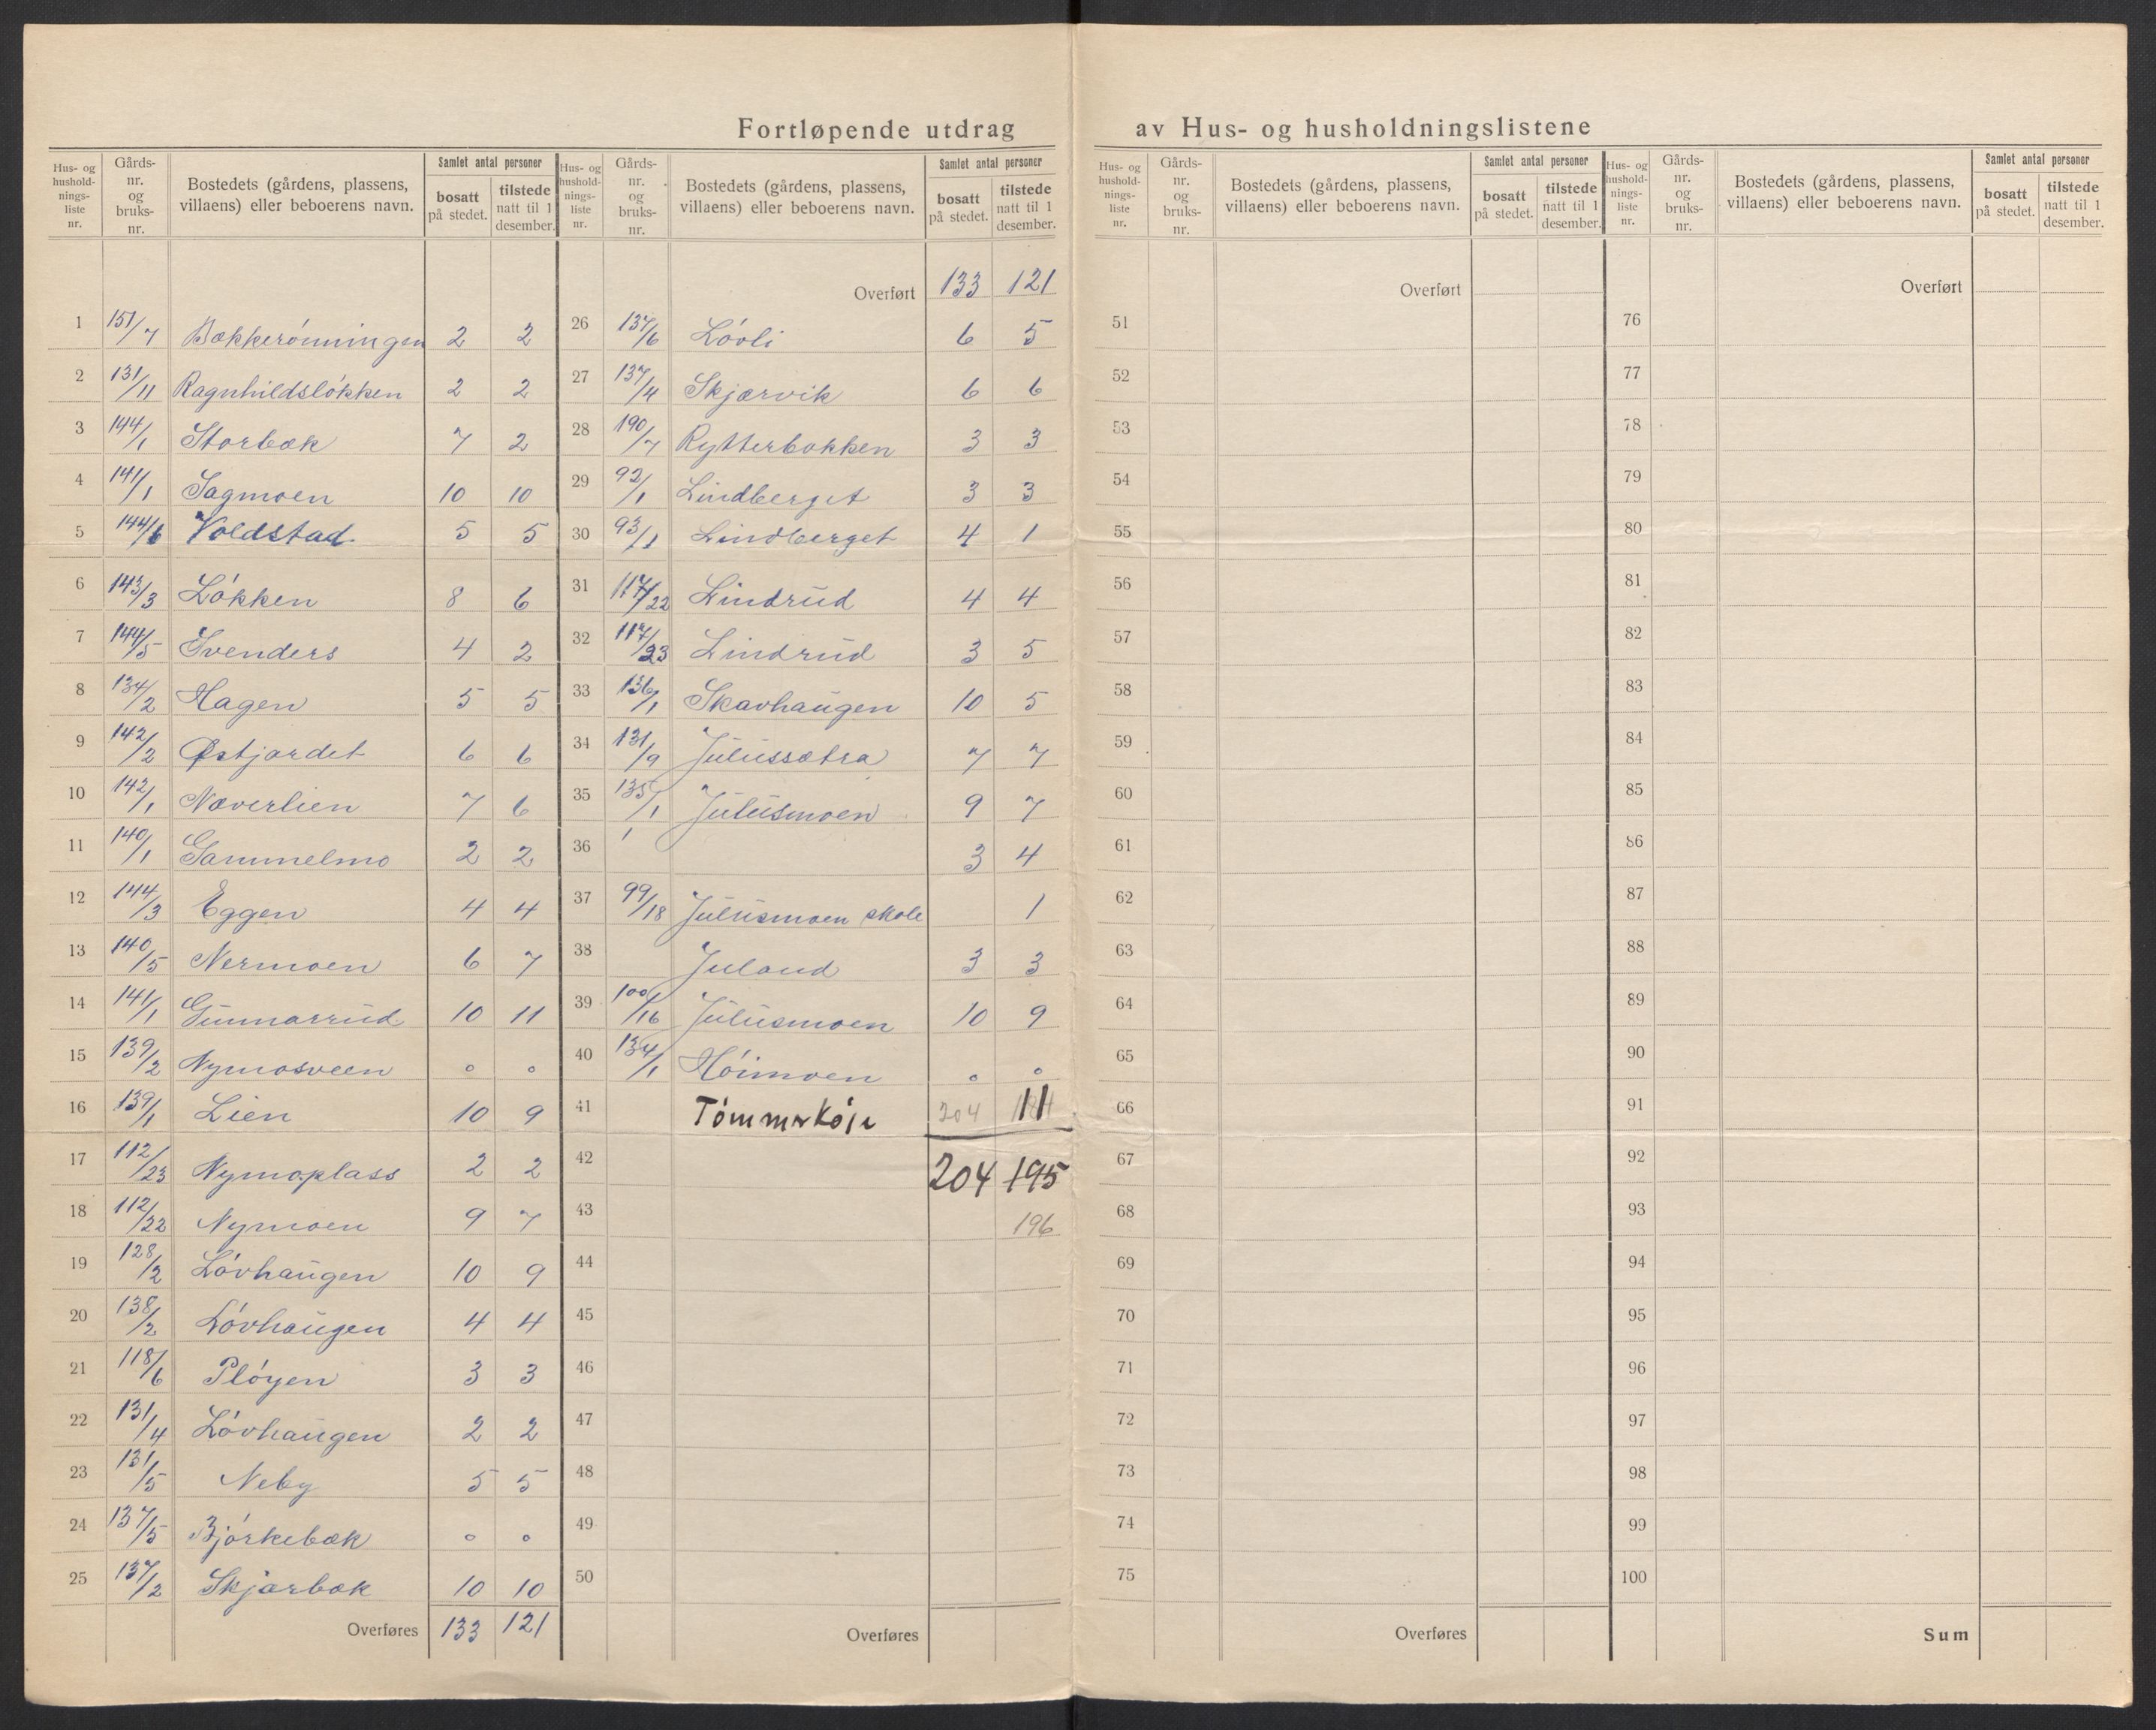 Fortløpende utdrag av Hus- og husholdningslistene
Hus- og hushold-nings-liste nr. | Gårds-nr. og bruks-nr. | Bostedets (gårdens, plassens, villaens) eller beboerens navn. | Samlet antal personer | bosatt på stedet. | tilstede natt til 1 desember.
1 151/7 Bækkerønningen 2 2
2 131/11 Ragnhildsløkken 2 2
3 144/1 Storbæk 7 2
4 141/1 Sagmoen 10 10
5 144/6 Voldstad. 5 5
6 143/3 Løkken 8 6
7 144/5 Svenders 4 2
8 134/2 Hagen 5 5
9 142/2 Østjordet 6 6
10 142/1 Næverlien 7 6
11 140/1 Gammelmo 2 2
12 144/3 Eggen 4 4
13 140/5 Nermoen 6 7
14 141/1 Gunnarrud 10 11
15 139/2 Nymosveen 0 0
16 139/1 Lien 10 9
17 112/23 Nymoplass 2 2
18 112/22 Nymoen 9 7
19 128/2 Løvhaugen 10 9
20 138/2 Løvhaugen 4 4
21 118/6 Pløyen 3 3
22 131/4 Løvhaugen 2 2
23 131/5 Neby 5 5
24 137/5 Bjørkebæk 0 0
25 137/2 Skjærbæk 10 10
Overføres 133 121
Hus- og hushold-nings-liste nr. | Gårds-nr. og bruks-nr. | Bostedets (gårdens, plassens, villaens) eller beboerens navn. | Samlet antal personer | bosatt på stedet. | tilstede natt til 1 desember.
Overført 133 121
26 137/6 Løvli 6 5
27 137/4 Skjærvik 6 6
28 190/7 Rytterbakken 3 3
29 92/1 Lindberget 3 3
30 93/1 Lindberget 4 1
31 117/22 Lindrud 4 4
32 117/23 Lindrud 3 5
33 136/1 Skavhaugen 10 5
34 131/9 Julussætra 7 7
35 135/1 Julusmoen 9 7
36 3 4
37 99/18 Julusmoen skole 1
38 Juland 3 3
39 100/16 Julusmoen 10 9
40 134/1 Høimoen 0 0
41 Tømmrkøie 204 11
42 204 195
43 196
44
45
46
47
48
49
50
Overføres
Hus- og hushold-nings-liste nr. | Gårds-nr. og bruks-nr. | Bostedets (gårdens, plassens, villaens) eller beboerens navn. | Samlet antal personer | bosatt på stedet. | tilstede natt til 1 desember.
Overført
51
52
53
54
55
56
57
58
59
60
61
62
63
64
65
66
67
68
69
70
71
72
73
74
75
Overføres
Hus- og hushold-nings-liste nr. | Gårds-nr. og bruks-nr. | Bostedets (gårdens, plassens, villaens) eller beboerens navn. | Samlet antal personer | bosatt på stedet. | tilstede natt til 1 desember.
Overført
76
77
78
79
80
81
82
83
84
85
86
87
88
89
90
91
92
93
94
95
96
97
98
99
100
Sum